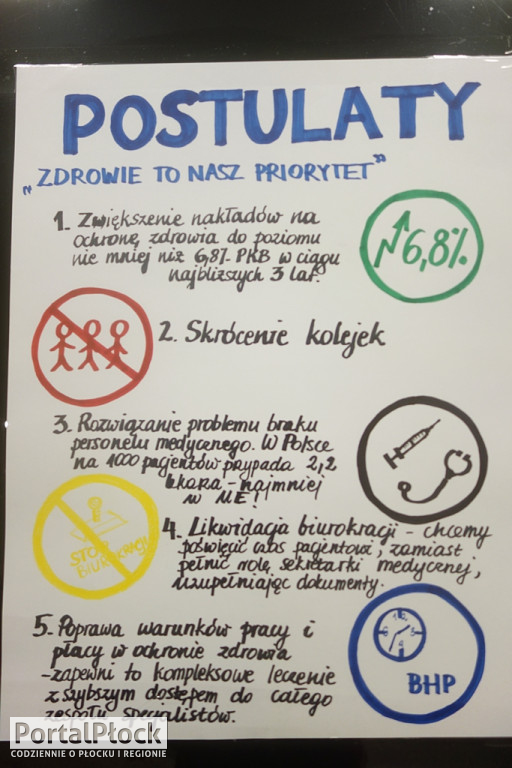 POSTULATY
„ZDROWIE TO NASZ PRIORYTET”
1. Zwiększenie nakładów na
ochronę zdrowia do poziomu
nie mniej niż 6,8% PKB w ciągu
najbliższych 3 lat.
6,8%
2. Skrócenie kolejek
3. Rozwiązanie problemu braku
personelu medycznego. W Polsce
na 1000 pacjentów przypada 2,2
lekarza - najmniej
w UE!
STOP
BIUROKRACJI
4. Likwidacja biurokracji - chcemy
poświęcić czas pacjentowi, zamiast
pełnić rolę sekretarki medycznej,
uzupełniając dokumenty.
5. Poprawa warunków pracy i
płacy w ochronie zdrowia
- zapewni to kompleksowe leczenie
z szybszym dostępem do całego
zespołu specjalistów.
BHP
PortalPłock
CODZIENNIE O PŁOCKU I REGIONIE